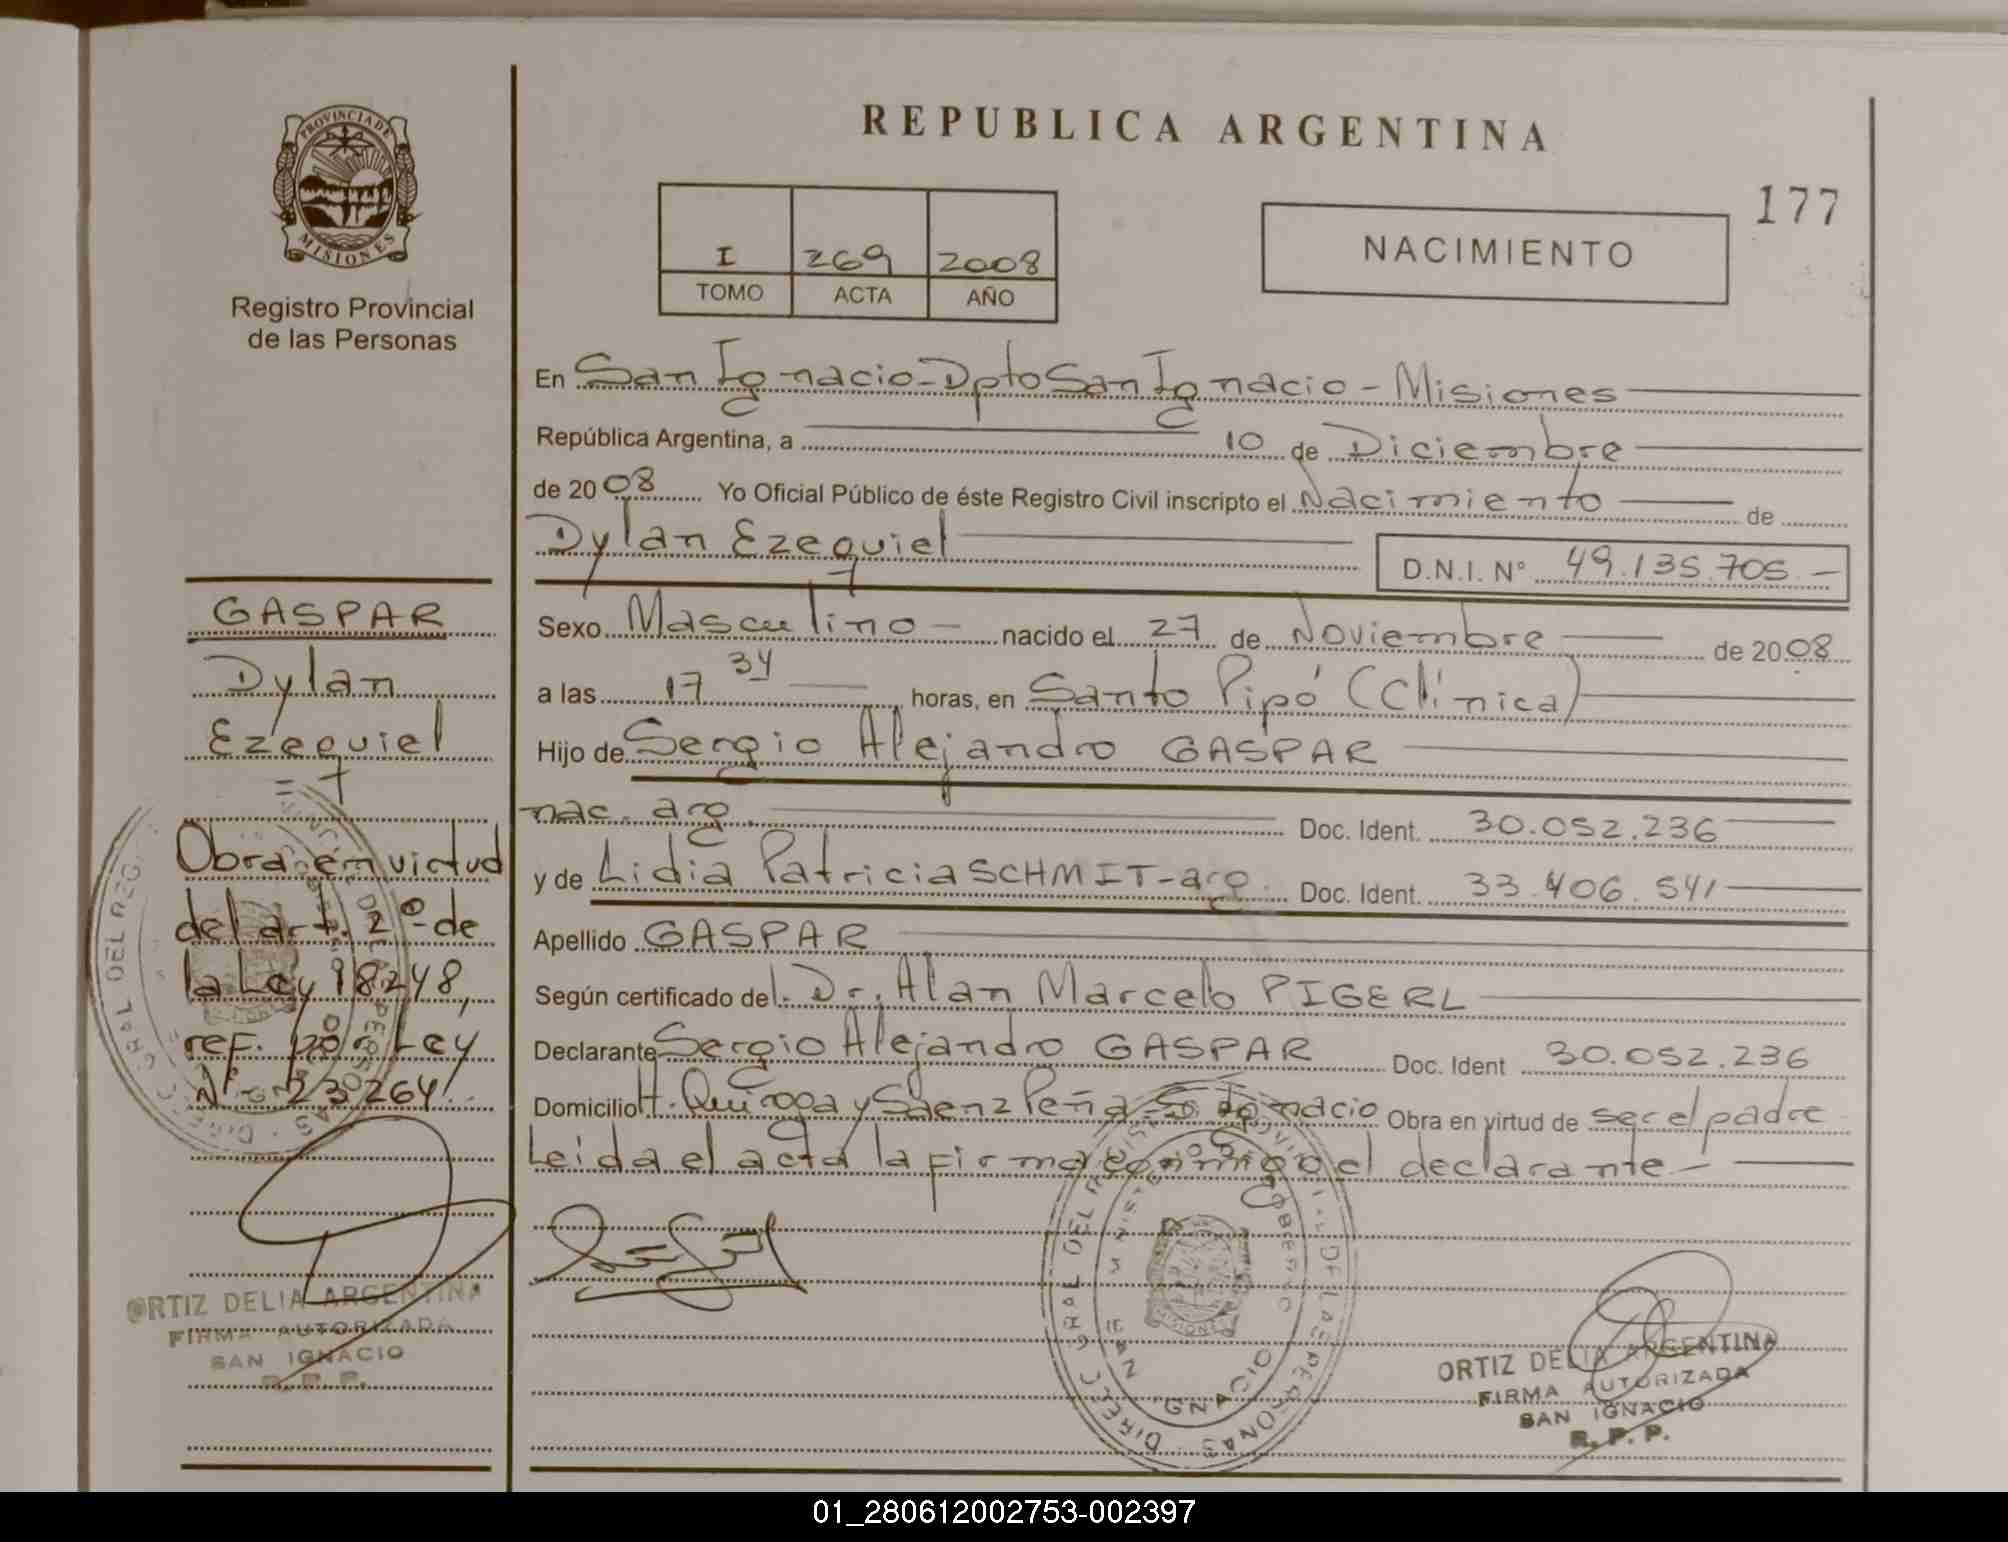 PROVINCIA DE
MISIONES
Registro Provincial
de las Personas
REPUBLICA ARGENTINA
177
I 269 2008
TOMO ACTA AÑO
NACIMIENTO
En San Ignacio - Dpto San Ignacio - Misiones
República Argentina, a 10 de Diciembre
de 2008 Yo Oficial Público de éste Registro Civil inscripto el Nacimiento de
Dylan Ezequiel D.N.I. N° 49.135.705.-
Sexo Masculino - nacido el 27 de Noviembre de 2008
a las 17 34 horas, en Santo Pipó (Clínica)
Hijo de Sergio Alejandro GASPAR
nac. arg. Doc. Ident. 30.052.236
y de Lidia Patricia SCHMIT - arg. Doc. Ident. 33.406.541
Apellido GASPAR
Según certificado del. Dr. Alan Marcelo PIGERL
Declarante Sergio Alejandro GASPAR Doc. Ident 30.052.236
Domicilio H. Quiroga y Saenz Peña - S. Ignacio Obra en virtud de ser el padre
Leida el acta la firma conmigo el declarante -
GASPAR
Dylan
Ezequiel
Obra en virtud
del art. 2º de
la Ley 18248,
ref. por Ley
Nº 23264.
ORTIZ DELIA ARGENTINA
FIRMA AUTORIZADA
SAN IGNACIO
R. P. P.
ORTIZ DELIA ARGENTINA
FIRMA AUTORIZADA
SAN IGNACIO
R. P. P.
01_280612002753-002397